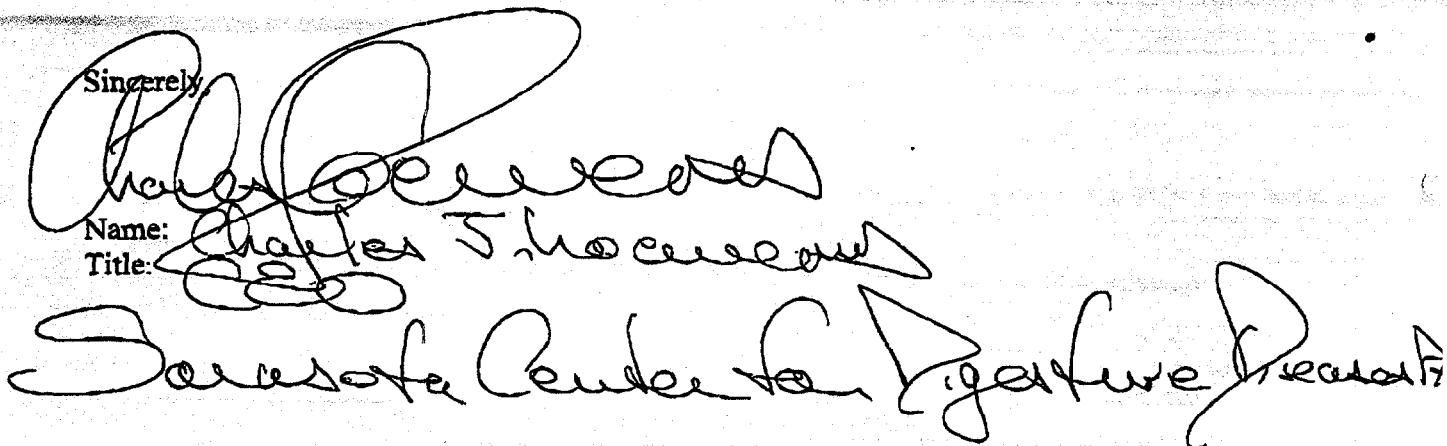 Sincerely,
Charles
Name: Charles J.
Title: CEO
Sarasota Center for Digestive Diseases